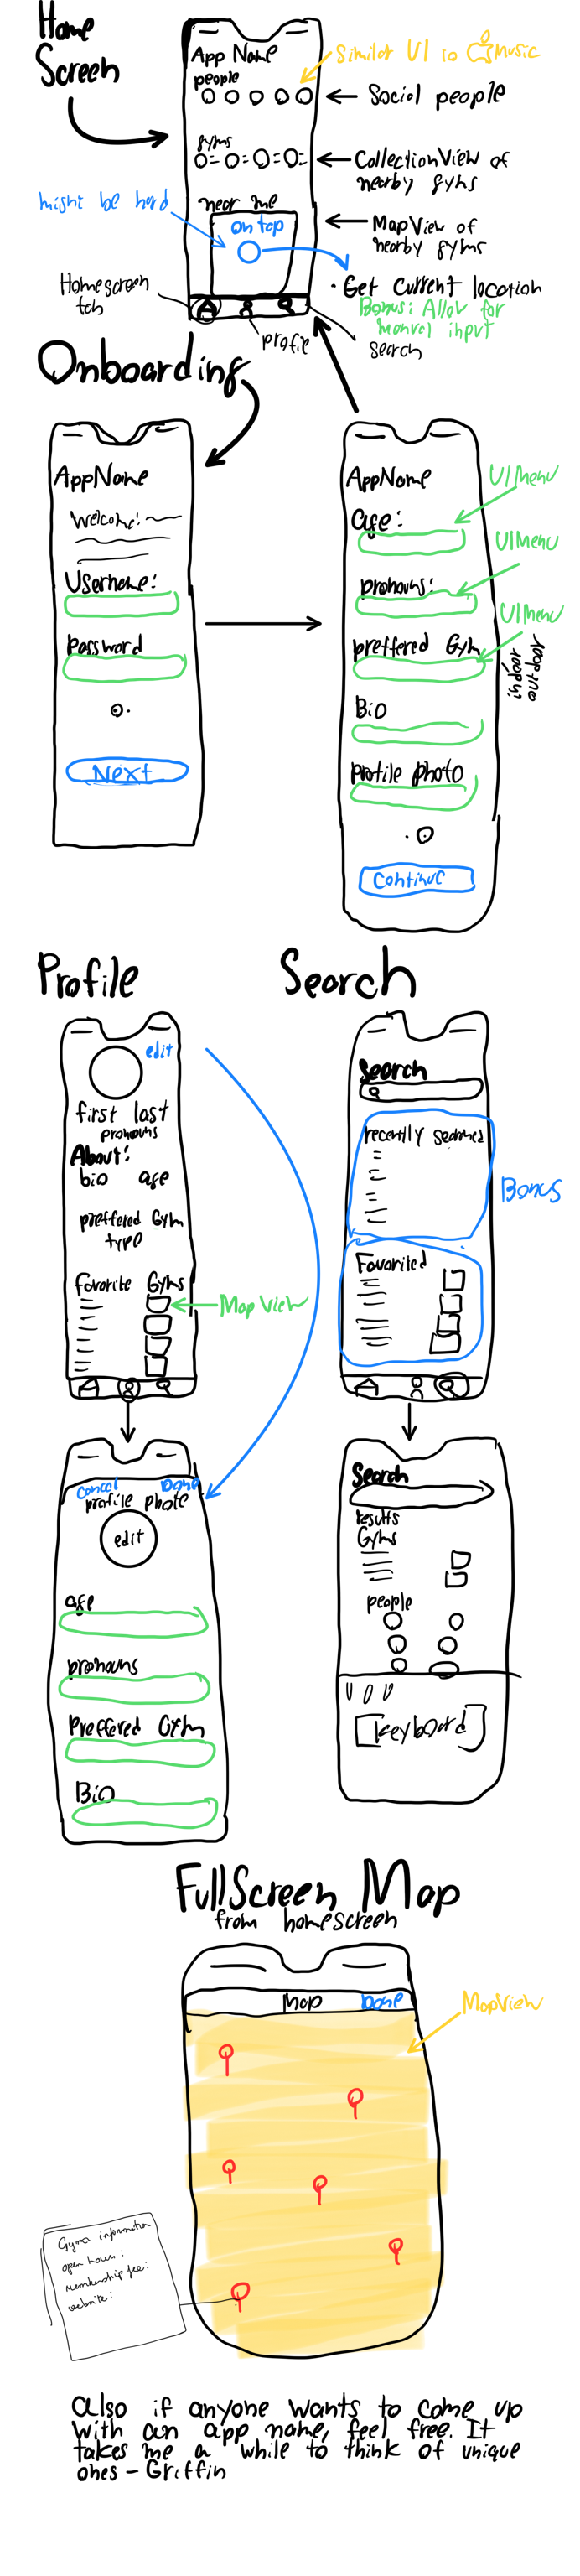 Home
Screen
App Name
people
Similar UI to Music
Social people
gyms
Collection View of
nearby gyms
might be hard
near me
on top
MapView of
nearby gyms
Homescreen
tab
· Get current location
Bonus: Allow for
manual input
profile
search
Onboarding
AppName
Welcome!
Username:
Password
Next
AppName
age:
UIMenu
pronouns:
UIMenu
preffered Gym
UIMenu
Bio
profile photo
Continue
Profile
edit
first last
pronouns
About:
bio age
preffered Gym
type
favorite Gyms
Map View
Cancel Done
profile photo
edit
age
pronouns
Preffered Gym
Bio
Search
Search
recently searched
Bonus
Favorited
Search
results
Gyms
people
keyboard
FullScreen Map
from homescreen
Map Done
MapView
Gym information
open hours:
membership fee:
website:
also if anyone wants to come up
with an app name, feel free. It
takes me a while to think of unique
ones - Griffin